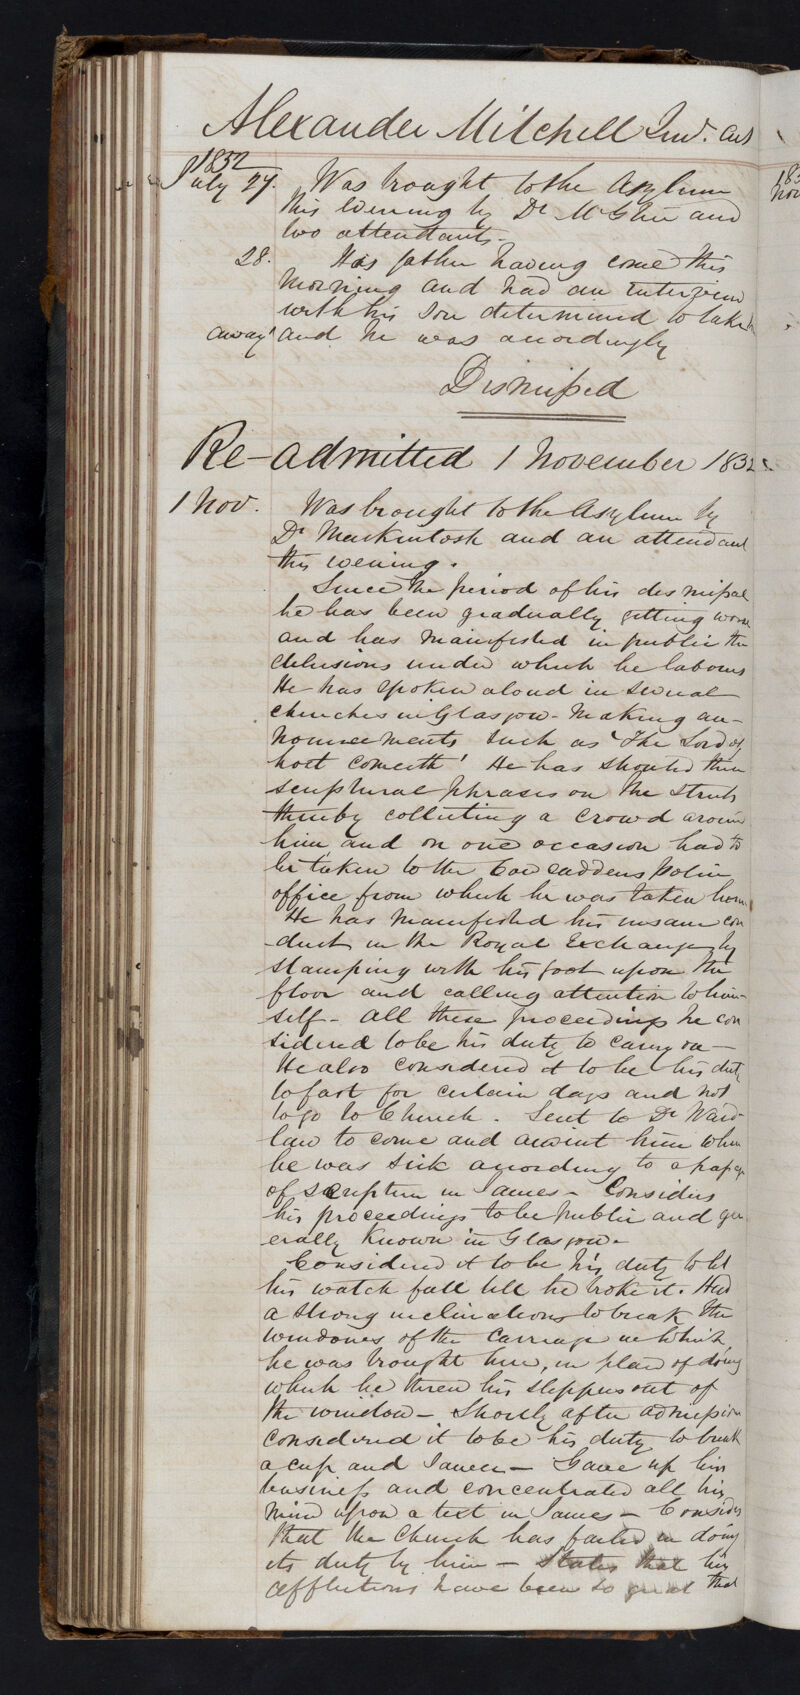 Alexander Mitchell
1832
July 27. Was brought to the Asylum
this evening by Dr McGhie and
two attendants.
28. His father having come this
morning and had an interview
with his son determined to take
away and he was accordingly
Dismissed
Re-admitted 1 November 1832
1 Nov. Was brought to the Asylum by
Dr Mackintosh and an attendant
this evening.
Since the period of his dismissal
he has been gradually getting worse
and has manifested in public the
delusions under which he labours
He has spoken aloud in several
churches in Glasgow - making an-
nouncements such as 'The Lord of
host cometh' He has shouted these
scriptural phrases on the streets
thereby collecting a crowd around
him and on one occasion had to
be taken to the Cowcaddens police
office from which he was taken home
He has manifested his insane con
-duct in the Royal Exchange by
stamping with his foot upon the
floor and calling attention to him-
self - All these proceedings he con
sidered to be his duty to carry on -
He also considered it to be his duty
to fast for certain days and not
to go to Church. Sent to Dr Ward-
law to come and anoint him when
he was sick according to a passage
of scripture in James - Considers
his proceedings to be public and gen
erally known in Glasgow -
Considered it to be his duty to let
his watch fall till he broke it. Had
a strong inclinations to break the
windows of the carriage in which
he was brought here, in place of doing
which he threw his slippers out of
the window - Shortly after admission
considered it to be his duty to break
a cup and saucer - Gave up his
business and concentrated all his
mind upon a text in James - Considers
that the Church has failed in doing
its duty by him - States that his
afflictions have been so great that